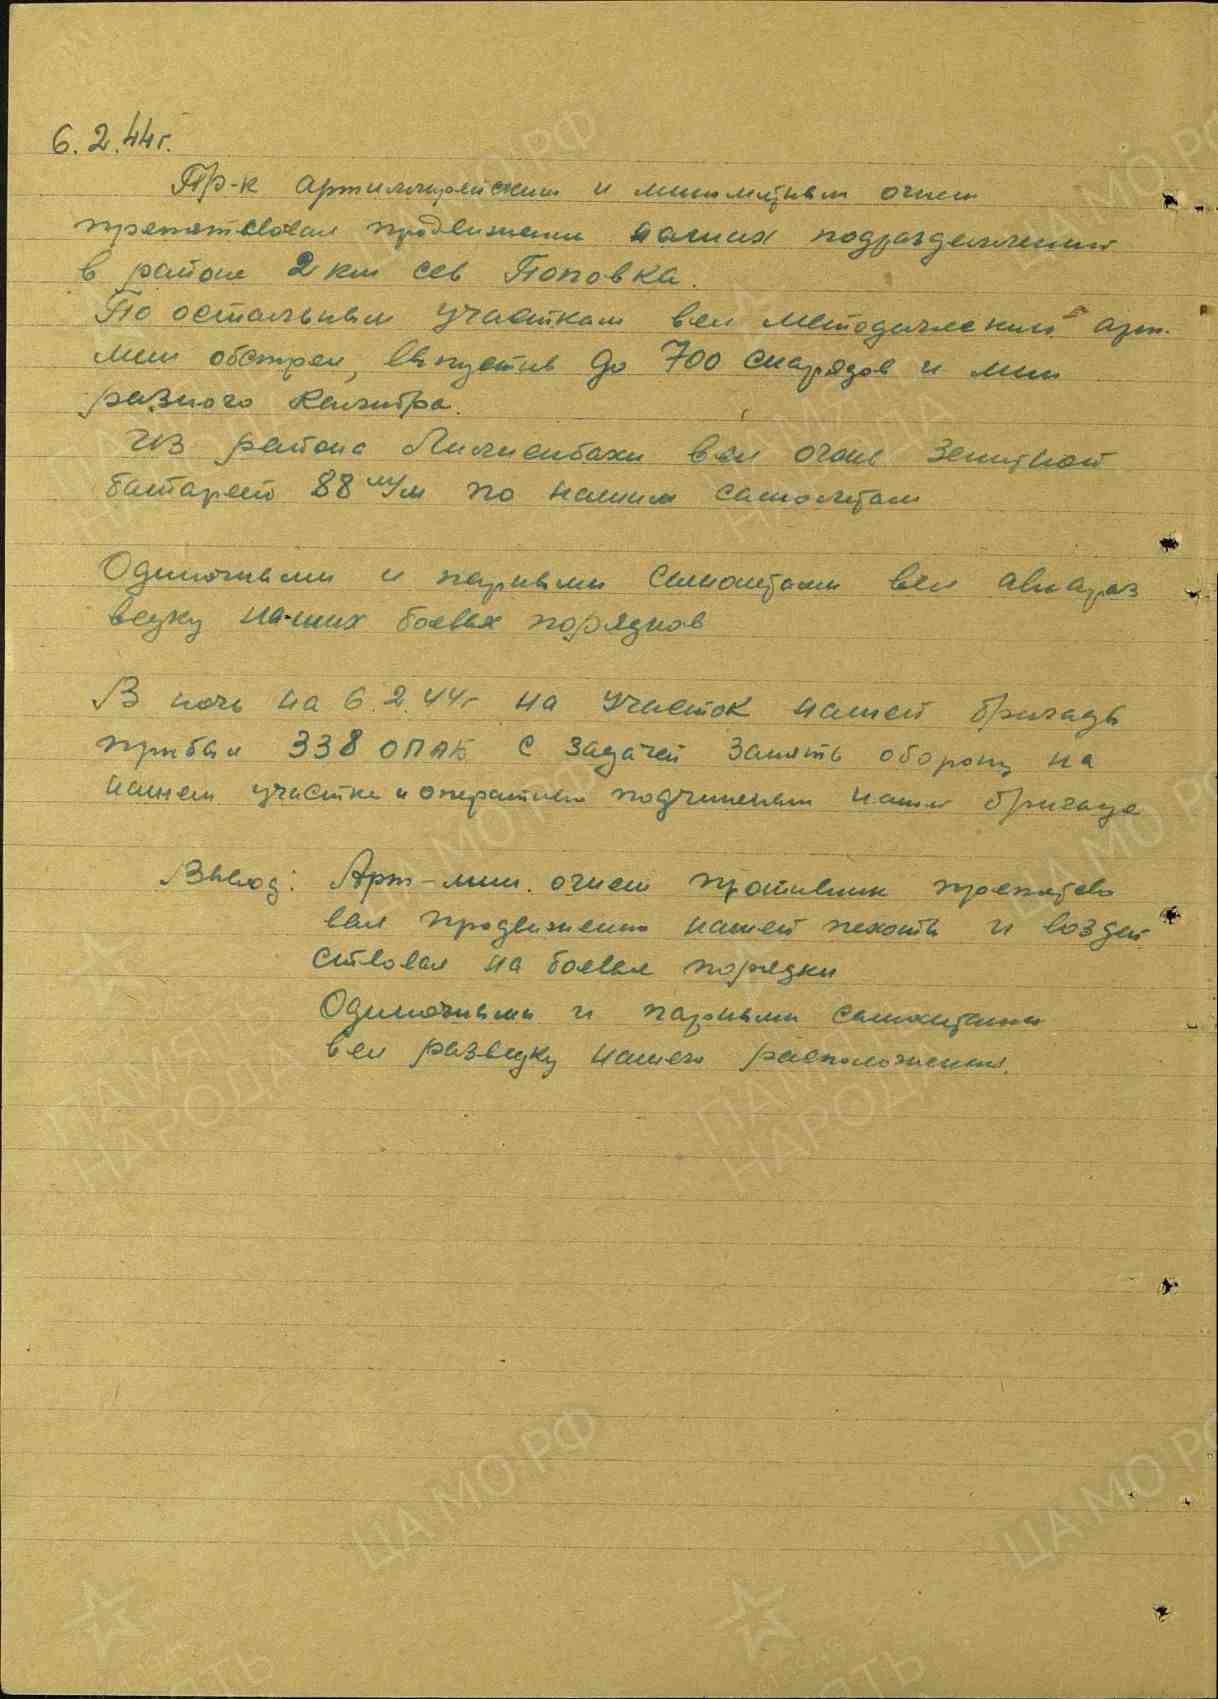 6.2.44г.
Пр-к артиллерийским и минометным огнем
препятствовал продвижению наших подразделений
в районе 2 км сев Поповка.
По остальным участкам вел методический арт.
мин обстрел, выпустив до 700 снарядов и мин
разного калибра.
Из района вел огонь зенитной
батареей 88 м/м по нашим самолетам
Одиночными и парными самолетами вел авиараз
ведку наших боевых порядков
В ночь на 6.2.44г на участок нашей бригады
прибыл 338 ОПАБ с задачей занять оборону на
нашем участке и оперативно подчиненным нашей бригаде
Вывод: Арт-мин. огнем противник препятство
вал продвижению нашей пехоты и воздей
ствовал на боевые порядки
Одиночными и парными самолетами
вел разведку нашего расположения.
ЦА МО РФ
ПАМЯТЬ
НАРОДА